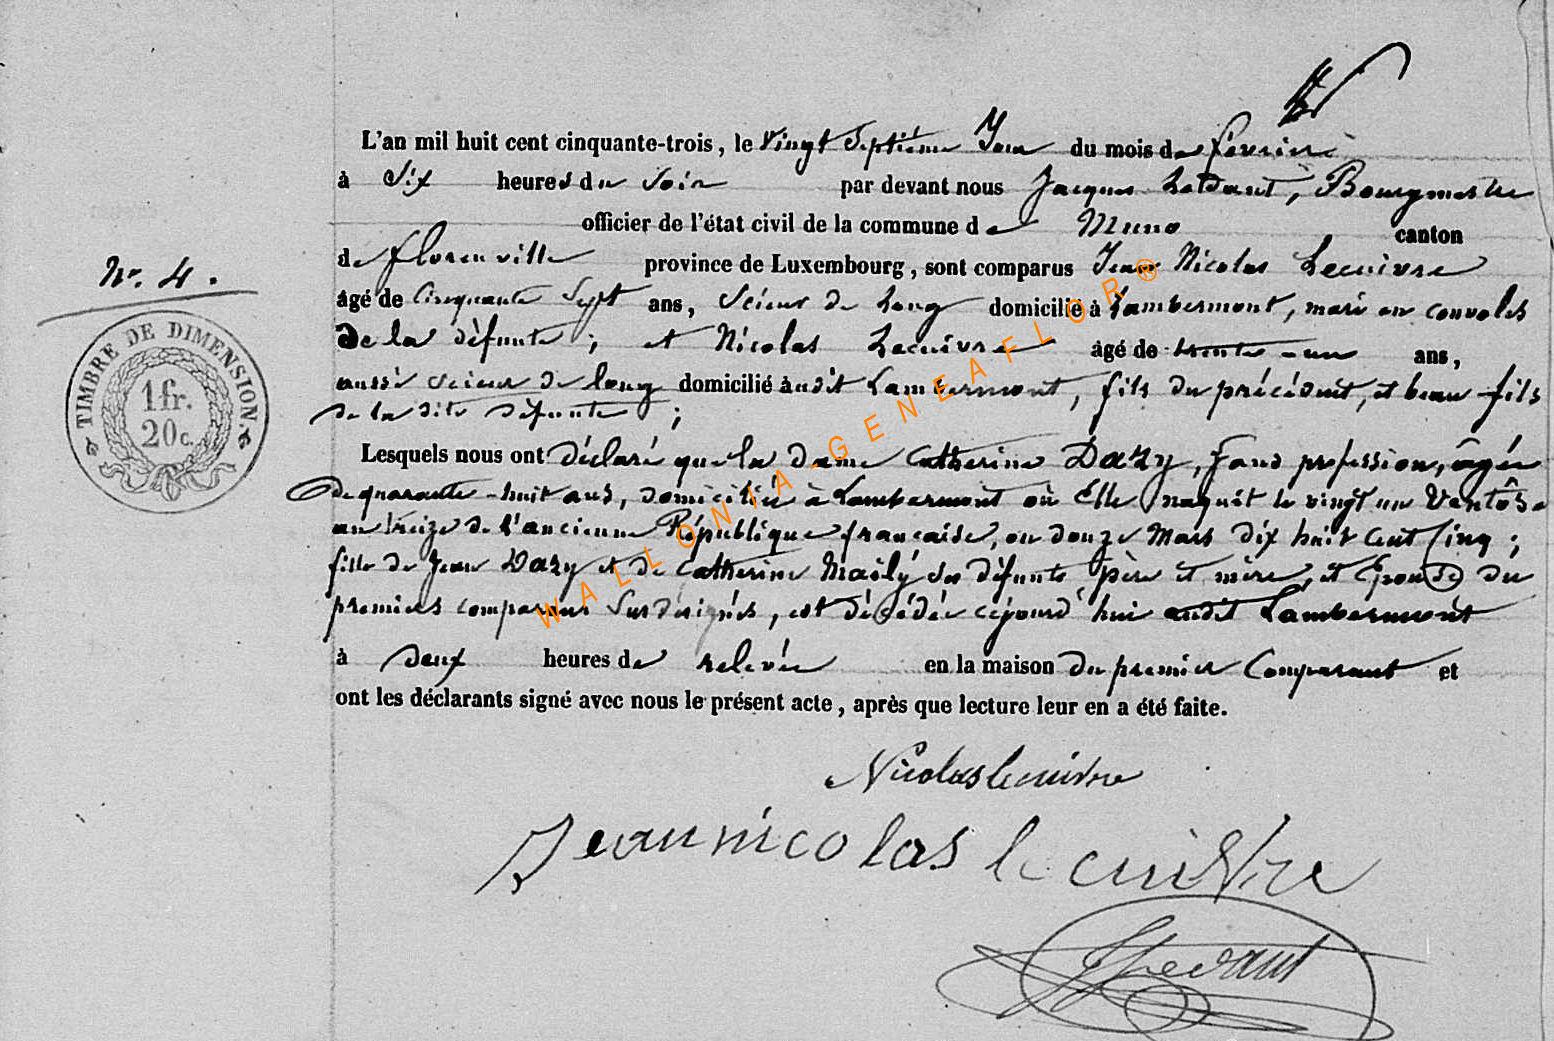 L'an mil huit cent cinquante-trois, le vingt Septième Jour du mois de février
à Six heures du Soir par devant nous Jacques Ledant, Bourgmestre
officier de l'état civil de la commune de Muno canton
de florenville province de Luxembourg, sont comparus Jean Nicolas Lecuivre
Nr. 4.
âgé de Cinquante Sept ans, Scieur de Long domicilié à Lambermont, mari en convoles
de la défunte; et Nicolas Lecuivre âgé de trente-un ans,
aussi scieur de long domicilié audit Lambermont, fils du précédent, et beau-fils
de la dite défunte;
TIMBRE DE DIMENSION.
1 fr.
20 c.
Lesquels nous ont déclaré que la dame Catherine Dazy, sans profession, âgée
de quarante-huit ans, domiciliée à Lambermont où Elle naquit le vingt un Ventôse
an treize de l'ancienne République française, ou douze Mars dix huit Cent Cinq;
fille de Jean Dazy et de Catherine Maily ses défunts père et mère, et Epouse du
premiers comparus Susdésignés, est décédée cejourd'hui audit Lambermont
à deux heures de relevée en la maison du premier Comparant et
ont les déclarants signé avec nous le présent acte, après que lecture leur en a été faite.
Nicolas lecuivre
Jean nicolas lecuivre
JLedant
WALLONIA-GENEAFLOR®